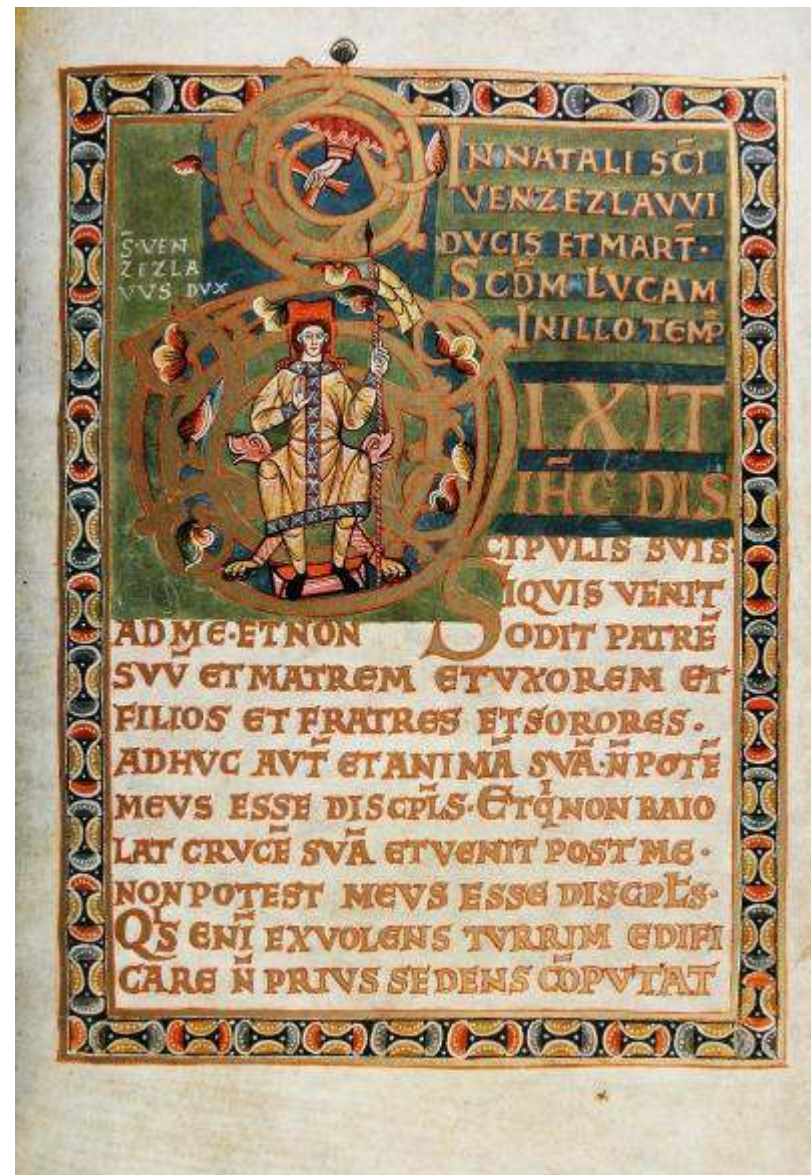 S̄·VEN
ZEZLA
VVS DVX
IN NATALI SC̄I
VENZEZLAVVI
DVCIS ET MART̄·
SCD̄M LVCAM
IN ILLO TEMP̄
DIXIT
IH̄C DIS
CIPVLIS SVIS·
SIQVIS VENIT
AD ME·ET NON ODIT PATRĒ
SVV̄ ET MATREM ET VXOREM ET
FILIOS ET FRATRES ET SORORES·
ADHVC AVT̄ ET ANIMĀ SVĀ·N̄ POTĒ
MEVS ESSE DISCPL̄S·ET Q̄ NON BAIO
LAT CRVCĒ SVĀ ET VENIT POST ME·
NON POTEST MEVS ESSE DISCPL̄S·
QͥS ENĪ EX VOLENS TVRRIM EDIFI
CARE N̄ PRIVS SEDENS CŌPVTAT